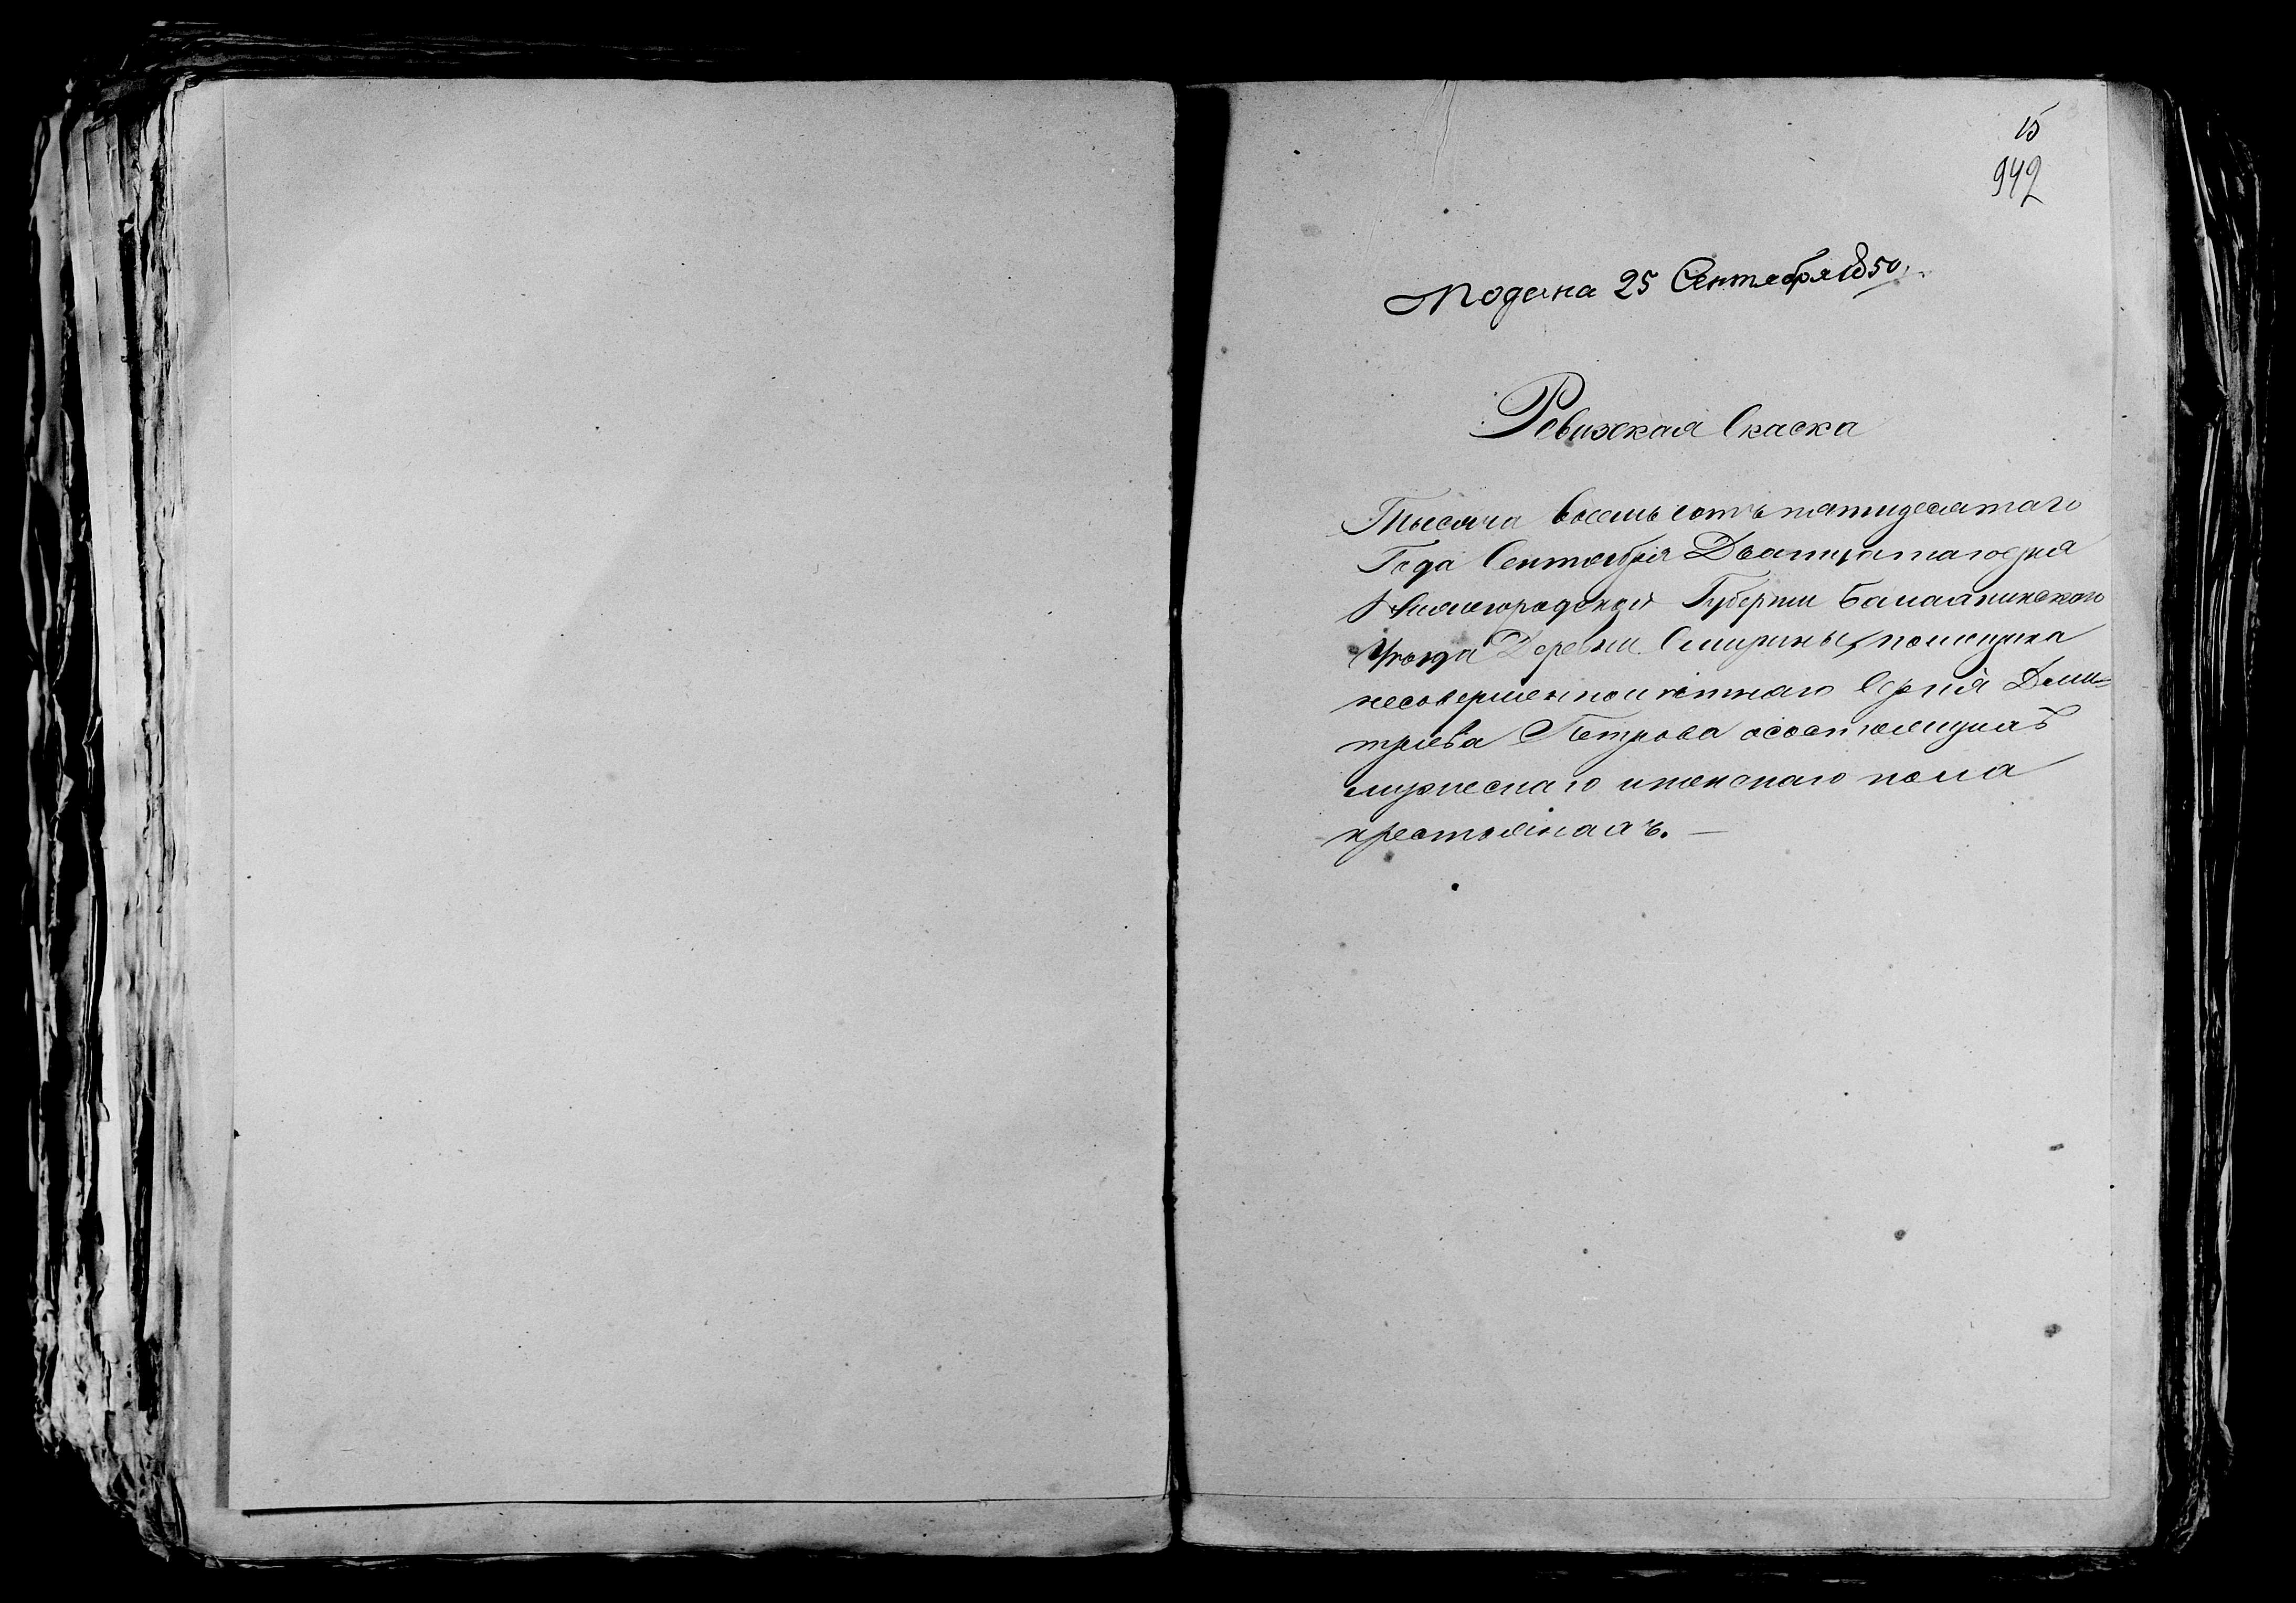 15
949
Подана 25 Сентября 1850,
Ревижская Скаска
Тысяча восемь сотъ пятидесятаго
Года Сентября Дватцатаго дня
Нижегородской Губернии Балахнинского
Уезда Деревни Смирины, помещика
несовершеннолѣтнаго Сергія Дми=
трева Петрова осостоящихъ
мужескаго иженскаго пола
крестьянахъ. —